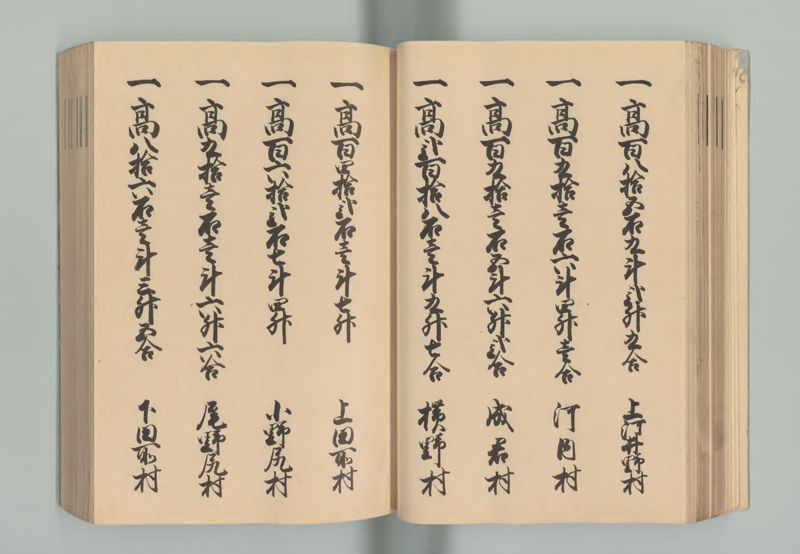 一高百八拾五石九斗弐升九合 上河井野村
一高百五拾壱石六斗四升壱合 河内村
一高百九拾壱石五斗六升弐合 成君村
一高弐百拾八石壱斗九升七合 横野村
一高百四拾弐石壱斗七升 上田所村
一高百六拾弐石七斗四升 小野尻村
一高九拾壱石壱斗六升六合 尾野尻村
一高八拾六石壱斗三升五合 下田所村